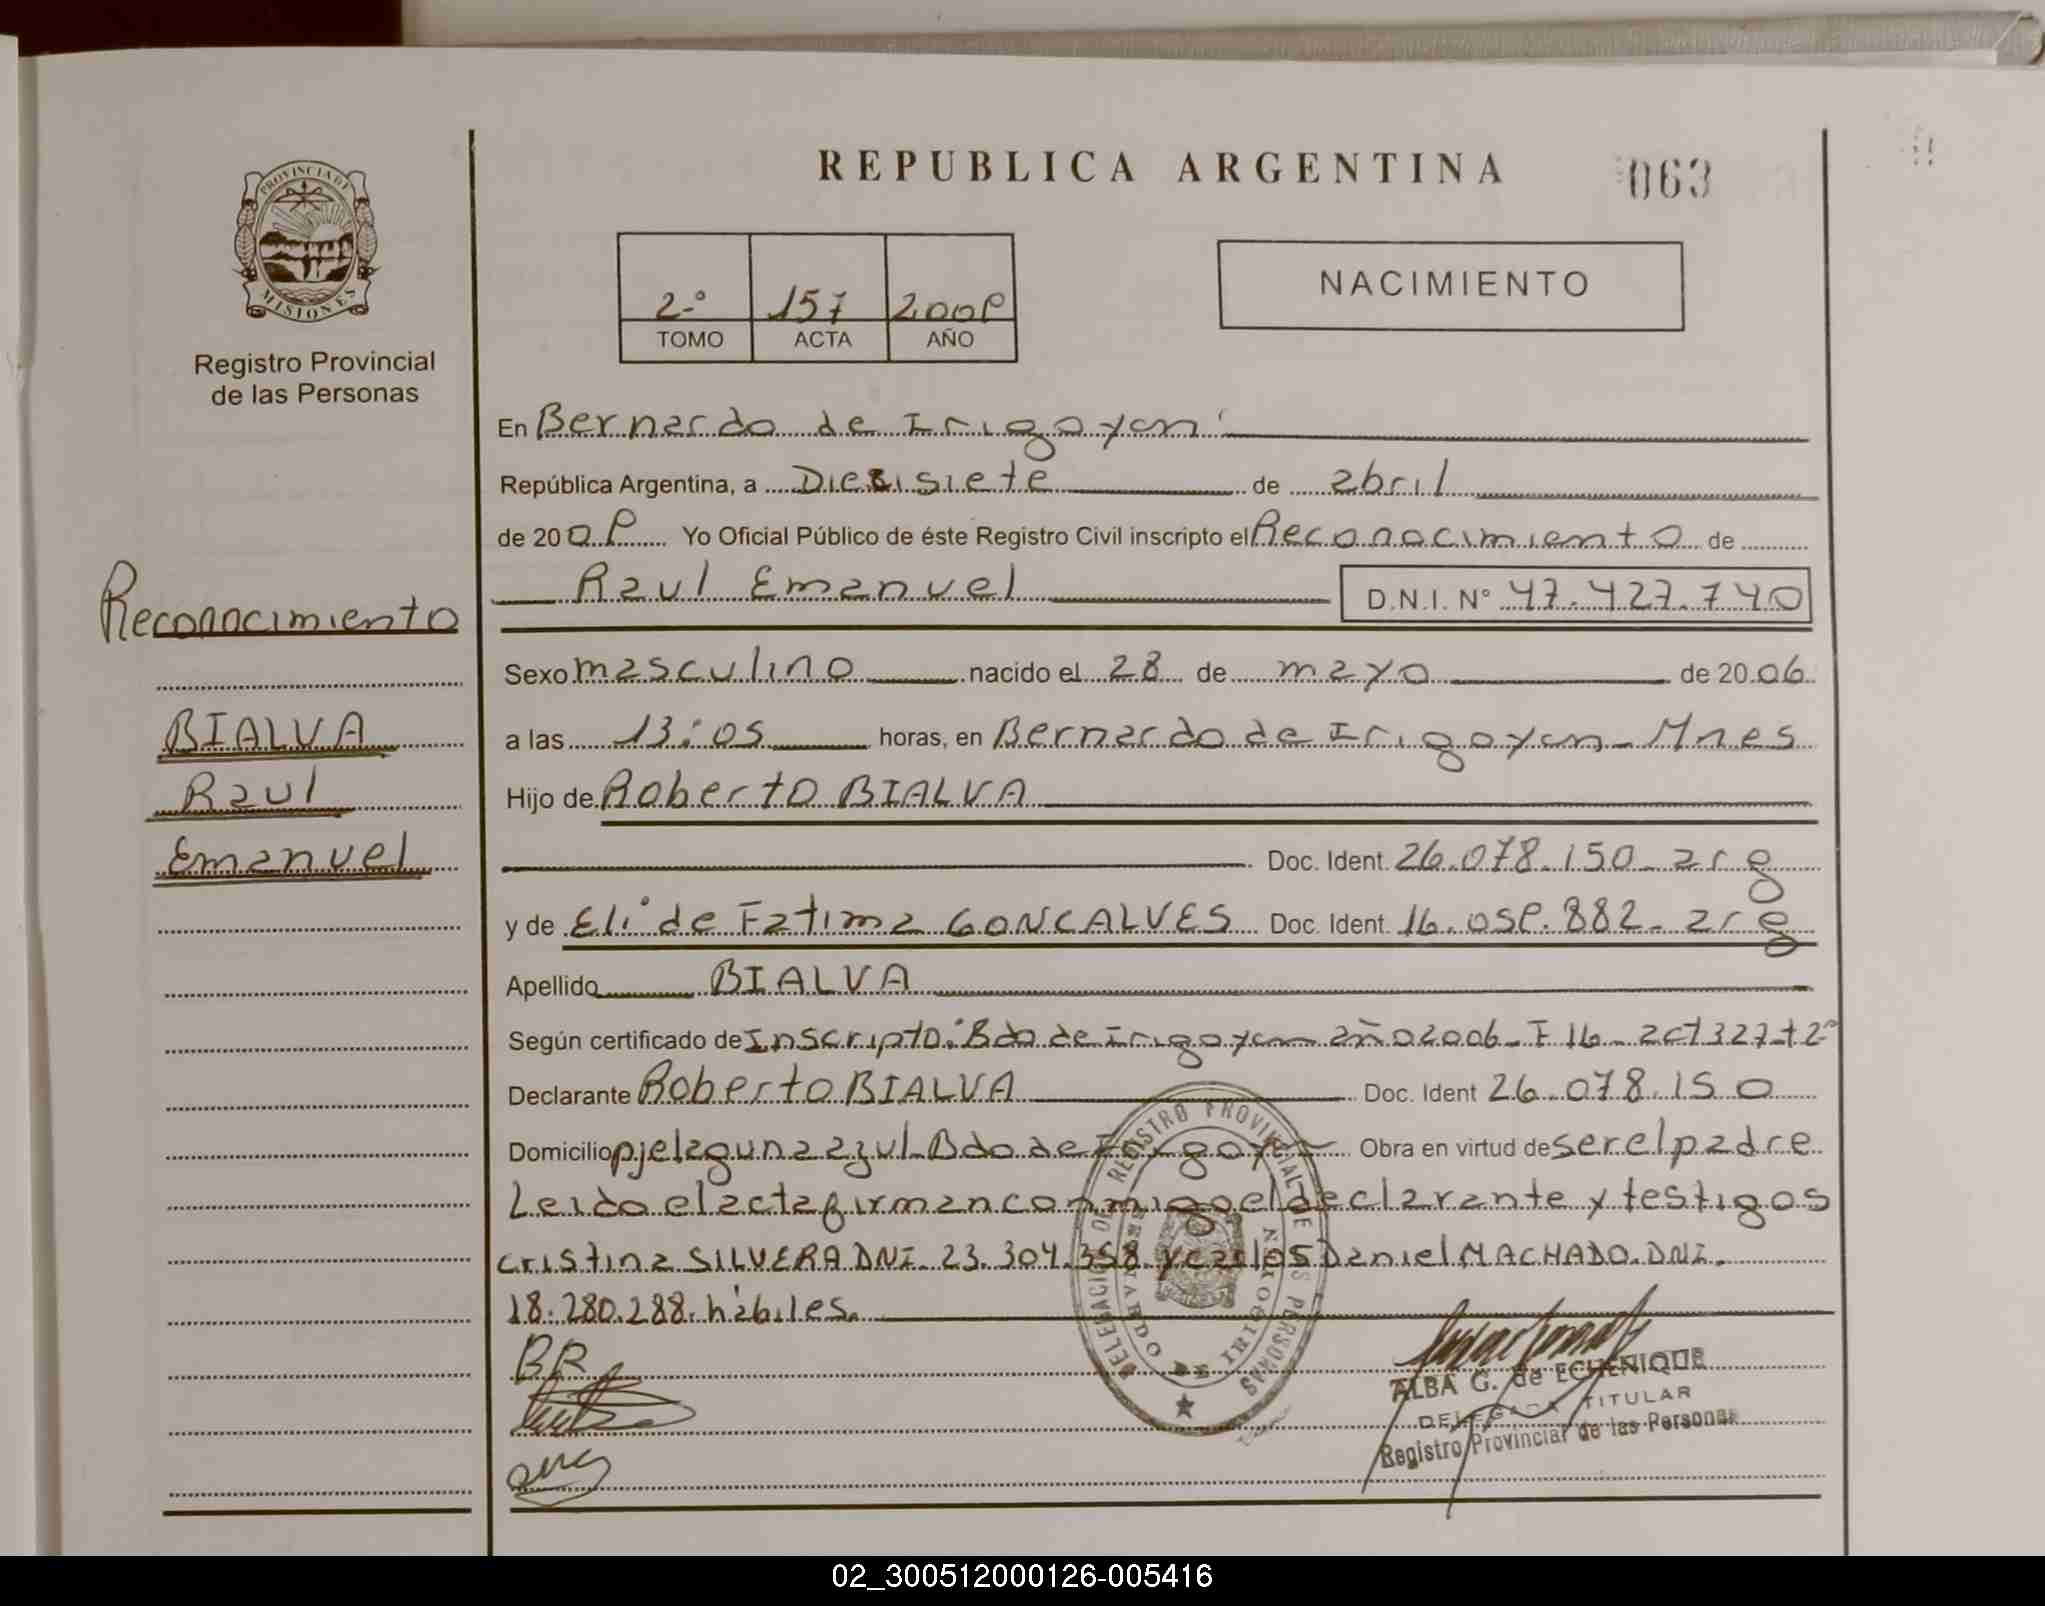 REPUBLICA ARGENTINA
063
PROVINCIA DE
MISIONES
Registro Provincial
de las Personas
2º 157 2009
TOMO ACTA AÑO
NACIMIENTO
En Bernardo de Irigoyen
República Argentina, a Diecisiete de abril
de 2009 Yo Oficial Público de éste Registro Civil inscripto el Reconocimiento de
Raul Emanuel D.N.I. Nº 47.427.740
Reconocimiento
BIALVA
Raul
Emanuel
Sexo masculino nacido el 28 de mayo de 2006
a las 13:05 horas, en Bernardo de Irigoyen - Mnes
Hijo de Roberto BIALVA
Doc. Ident. 26.078.150 - arg
y de Eli de Fatima GONCALVES Doc. Ident. 16.059.882 - arg
Apellido BIALVA
Según certificado de Inscripto: Bdo de Irigoyen año 2006 - F 16 - act 327 - t 2º
Declarante Roberto BIALVA Doc. Ident 26.078.150
Domicilio pje laguna azul - Bdo de Irigoyen Obra en virtud de ser el padre
Leido el acta firman conmigo el declarante y testigos
cristina SILVERA DNI. 23.304.358 y carlos Daniel MACHADO. DNI.
18.280.288. hábiles.
BR
DELEGACION DE REGISTRO PROVINCIAL DE LAS PERSONAS
BERNARDO DE IRIGOYEN
ALBA G. de ECHENIQUE
DELEGADA TITULAR
Registro Provincial de las Personas
02_300512000126-005416